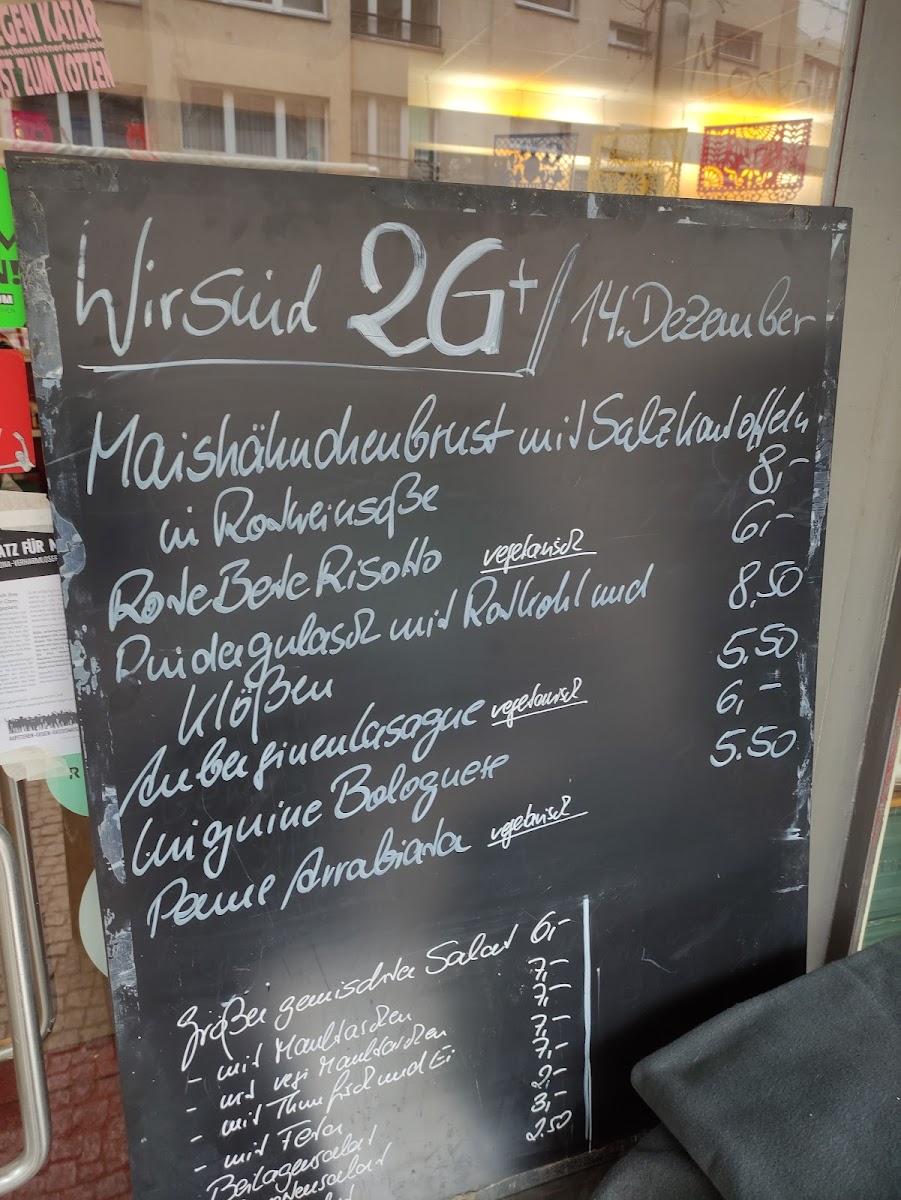 GEGEN KATAR
IST ZUM KOTZEN
Wir sind 2G+ / 14. Dezember
Maishähnchenbrust mit Salzkartoffeln
in Rotweinsoße 8,-
Rote Bete Risotto vegetarisch 6,-
Rindergulasch mit Rotkohl und 8.50
Klößen
Auberginenlasagne vegetarisch 5.50
Linguine Bolognese 6,-
Penne Arrabiata vegetarisch 5.50
Großer gemischter Salat 6,-
- mit Maultaschen 7,-
- mit vegi Maultaschen 7,-
- mit Thunfisch und Ei 7,-
- mit Feta 7,-
Beilagensalat
3,-
2.50
ATZ FÜR